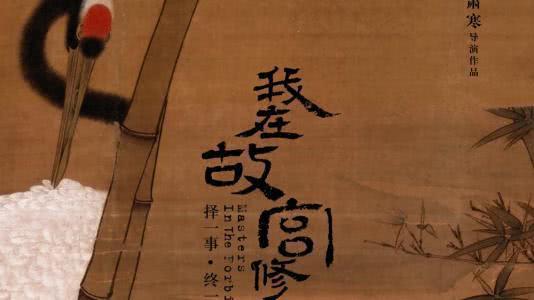 寒
导演作品
我在
故
宫修
Masters
In The Forbi
择一事·终一